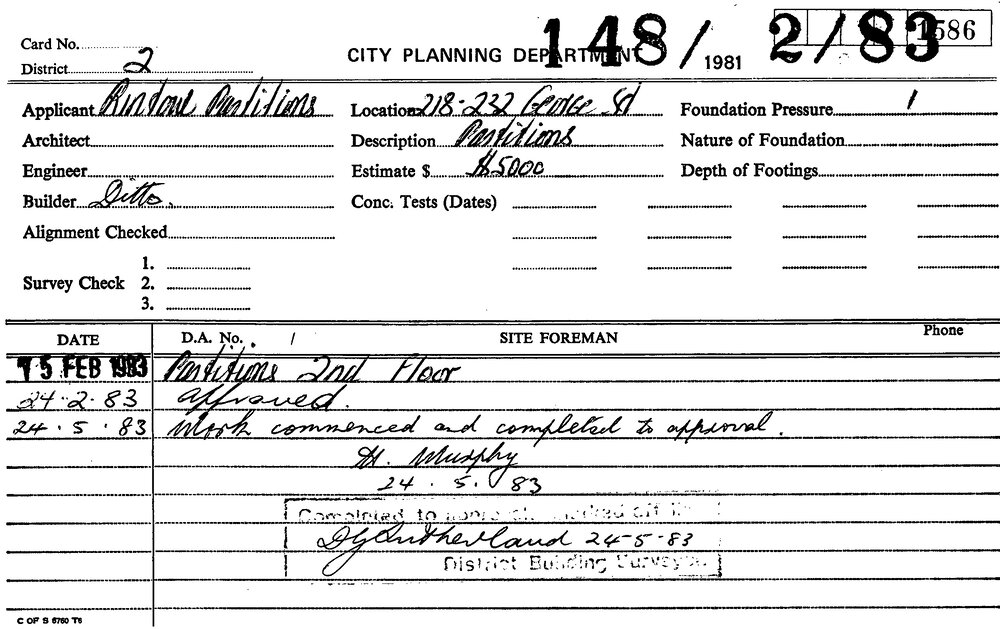 Card No.
District 2
CITY PLANNING DEPARTMENT
148/ 1981 2/83
1586
Applicant Partitions
Location 218-232 George St
Foundation Pressure
Architect
Description Partitions
Nature of Foundation
Engineer
Estimate $ $5000
Depth of Footings
Builder Ditto.
Conc. Tests (Dates)
Alignment Checked
Survey Check
1.
2.
3.
DATE D.A. No. / SITE FOREMAN Phone
15 FEB 1983 Partitions 2nd Floor
24·2·83 approved.
24·5·83 Work commenced and completed to approval.
H. Murphy
24·5·83
Completed to marked off
DG Sutherland 24-5-83
District Building Surveyor
C OF S 6760 T6